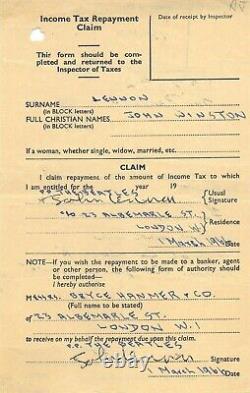 Income Tax Repayment
Claim
Date of receipt by Inspector
This form should be com-
pleted and returned to the
Inspector of Taxes
SURNAME LENNON
(in BLOCK letters)
FULL CHRISTIAN NAMES JOHN WINSTON
(in BLOCK letters)
If a woman, whether single, widow, married, etc.
CLAIM
I claim repayment of the amount of Income Tax to which
I am entitled for the year 19
THE BEATLES
Usual
Signature
23 ALBEMARLE ST.
Residence
LONDON W.1
1 March 1966
NOTE—If you wish the repayment to be made to a banker, agent
or other person, the following form of authority should be
completed:—
I hereby authorise
MESSRS. BRYCE HANMER & CO.
(Full name to be stated)
of 23 ALBEMARLE ST.
LONDON W.1
to receive on my behalf the repayment due upon this claim.
P.P. THE BEATLES
Signature
1 March 1966